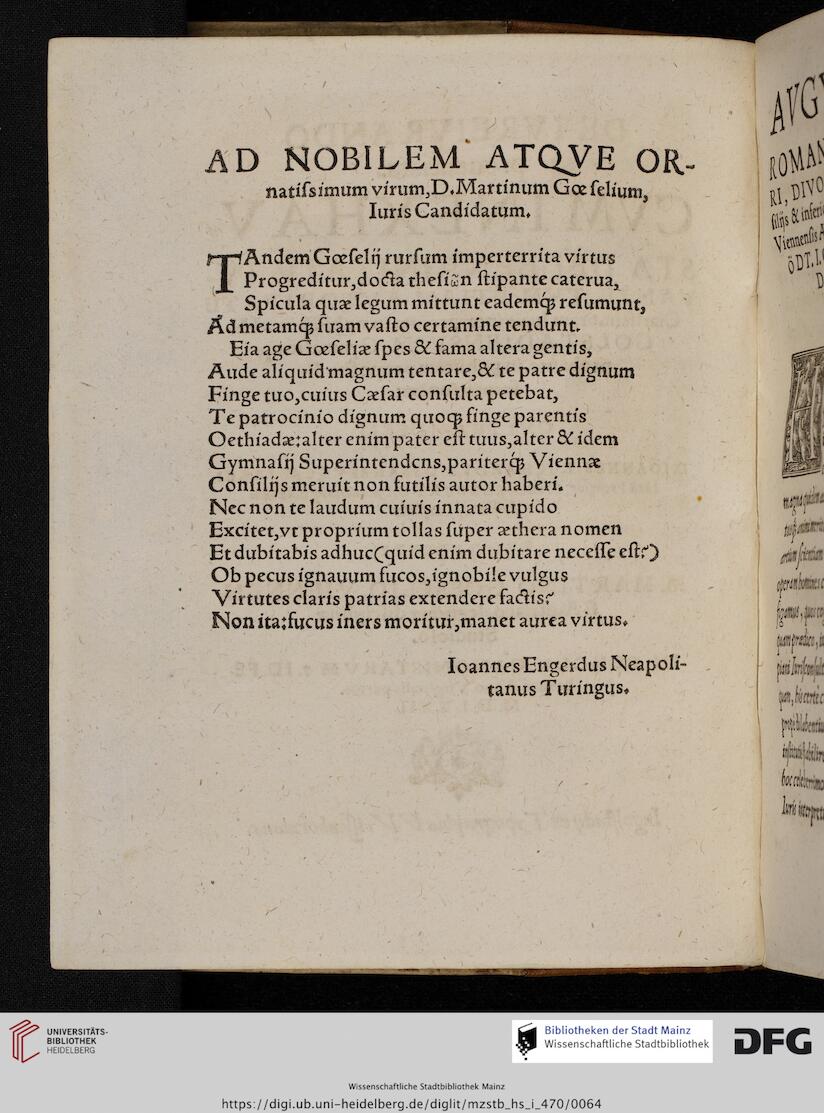 AD NOBILEM ATQVE OR-
natiſsimum virum,D.Martinum Gœſelium,
Iuris Candidatum.
TAndem Gœſelij rurſum imperterrita virtus
Progreditur,docta theſiῶn ſtipante caterua,
Spicula quæ legum mittunt eademq́; reſumunt,
Ad metamq́; ſuam vaſto certamine tendunt.
Eia age Gœſeliæ ſpes & fama altera gentis,
Aude aliquid magnum tentare,& te patre dignum
Finge tuo,cuius Cæſar conſulta petebat,
Te patrocinio dignum quoq; finge parentis
Oethiadæ:alter enim pater eſt tuus,alter & idem
Gymnaſij Superintendens,pariterq́; Viennæ
Conſilijs meruit non futilis autor haberi.
Nec non te laudum cuiuis innata cupido
Excitet,vt proprium tollas ſuper æthera nomen
Et dubitabis adhuc(quid enim dubitare neceſſe eſt?)
Ob pecus ignauum fucos,ignobile vulgus
Virtutes claris patrias extendere factis?
Non ita:fucus iners moritur,manet aurea virtus.
Ioannes Engerdus Neapoli-
tanus Turingus.
RI, DIVO
Viennenſis
UNIVERSITÄTS-
BIBLIOTHEK
HEIDELBERG
Bibliotheken der Stadt Mainz
Wissenschaftliche Stadtbibliothek
DFG
Wissenschaftliche Stadtbibliothek Mainz
https://digi.ub.uni-heidelberg.de/diglit/mzstb_hs_i_470/0064